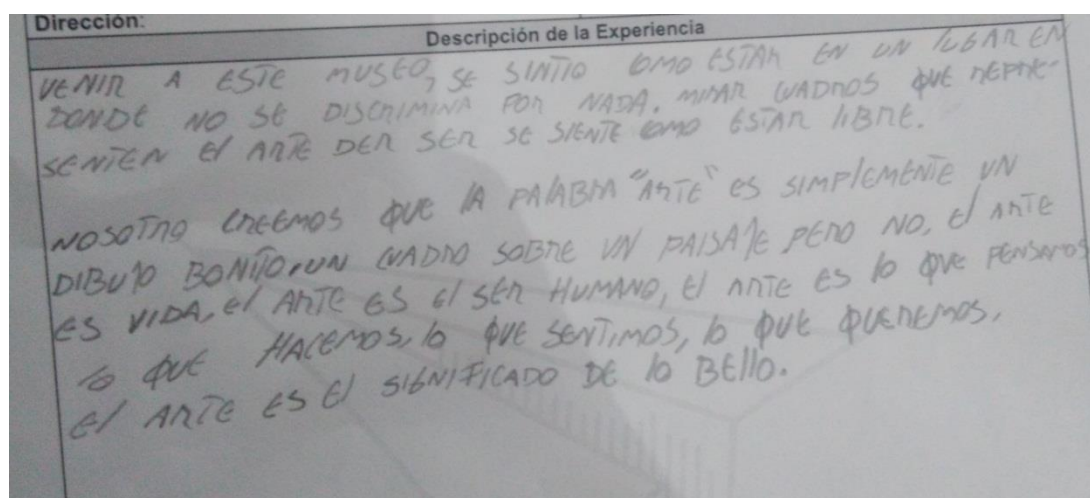 Dirección:
Descripción de la Experiencia
VENIR A ESTE MUSEO, SE SINTIO COMO ESTAR EN UN LUGAR EN
DONDE NO SE DISCRIMINA POR NADA. MIRAR CUADROS QUE REPRE-
SENTEN El ARTE DER SER SE SIENTE COMO ESTAR lIBRE.
NOSOTRO CREEMOS QUE lA PAlABRA "ARTE" ES SIMPlEMENTE UN
DIBUJO BONITO, UN CUADRO SOBRE UN PAISAJE PERO NO, El ARTE
ES VIDA, El ARTE ES El SER HUMANO, El ARTE ES lo QUE PENSAMOS
lo QUE HACEMOS, lo QUE SENTIMOS, lo QUE QUEREMOS.
El ARTE ES El SIGNIFICADO DE lo BEllO.